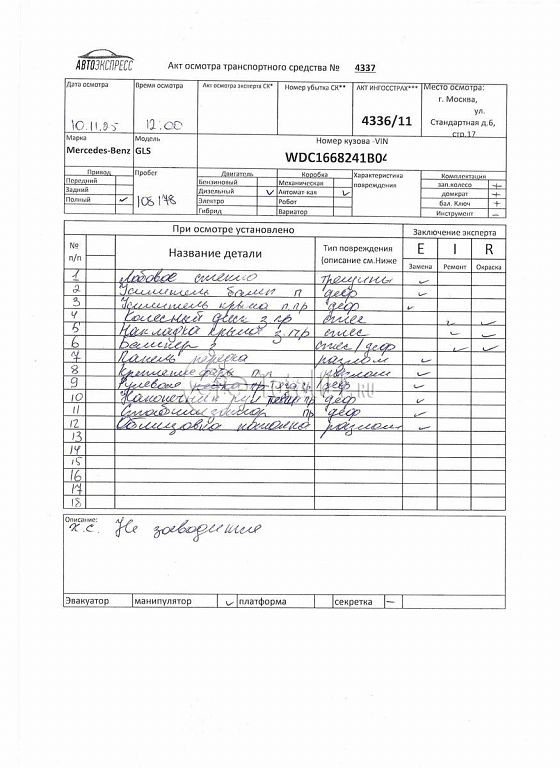 АВТОЭКСПРЕСС
Акт осмотра транспортного средства № 4337
Дата осмотра
Время осмотра
Акт осмотра эксперта СК*
Номер убытка СК**
АКТ ИНГОССТРАХ***
Место осмотра:
г. Москва,
ул.
Стандартная д.6,
стр.17
12:00
4336/11
Марка
Модель
Номер кузова -VIN
Mercedes-Benz GLS
WDC1668241B04
Привод
Пробег
Двигатель
Коробка
Характеристика
повреждения
Комплектация
Передний
Бензиновый
Механическая
зап.колесо +
Задний
Дизельный ✓
Автомат-кая ✓
домкрат +
Полный ✓
108178
Электро
Робот
бал. Ключ +
Гибрид
Вариатор
Инструмент –
При осмотре установлено
Заключение эксперта
№
п/п
Название детали
Тип повреждения
(описание см.Ниже
E I R
Замена Ремонт Окраска
1 Лобовое стекло трещины ✓
2 Усилитель балки п деф ✓
3 Усилитель крыла п.пр деф ✓
4 Колесный диск з пр спес ✓ ✓
5 Накладка крыла з.пр спес ✓ ✓
6 Бампер з спес/деф ✓ ✓
7 Панель разлом ✓
8 Крепление фары п.п разлом ✓
9 Рулевая тяга деф ✓
10 Наконечник рул тяги пр деф ✓
11 Стабилизатор пр деф ✓
12 Облицовка потолка разлом ✓
13
14
15
16
17
18
Описание:
х.с. Не заводится
Эвакуатор манипулятор ✓ платформа секретка –